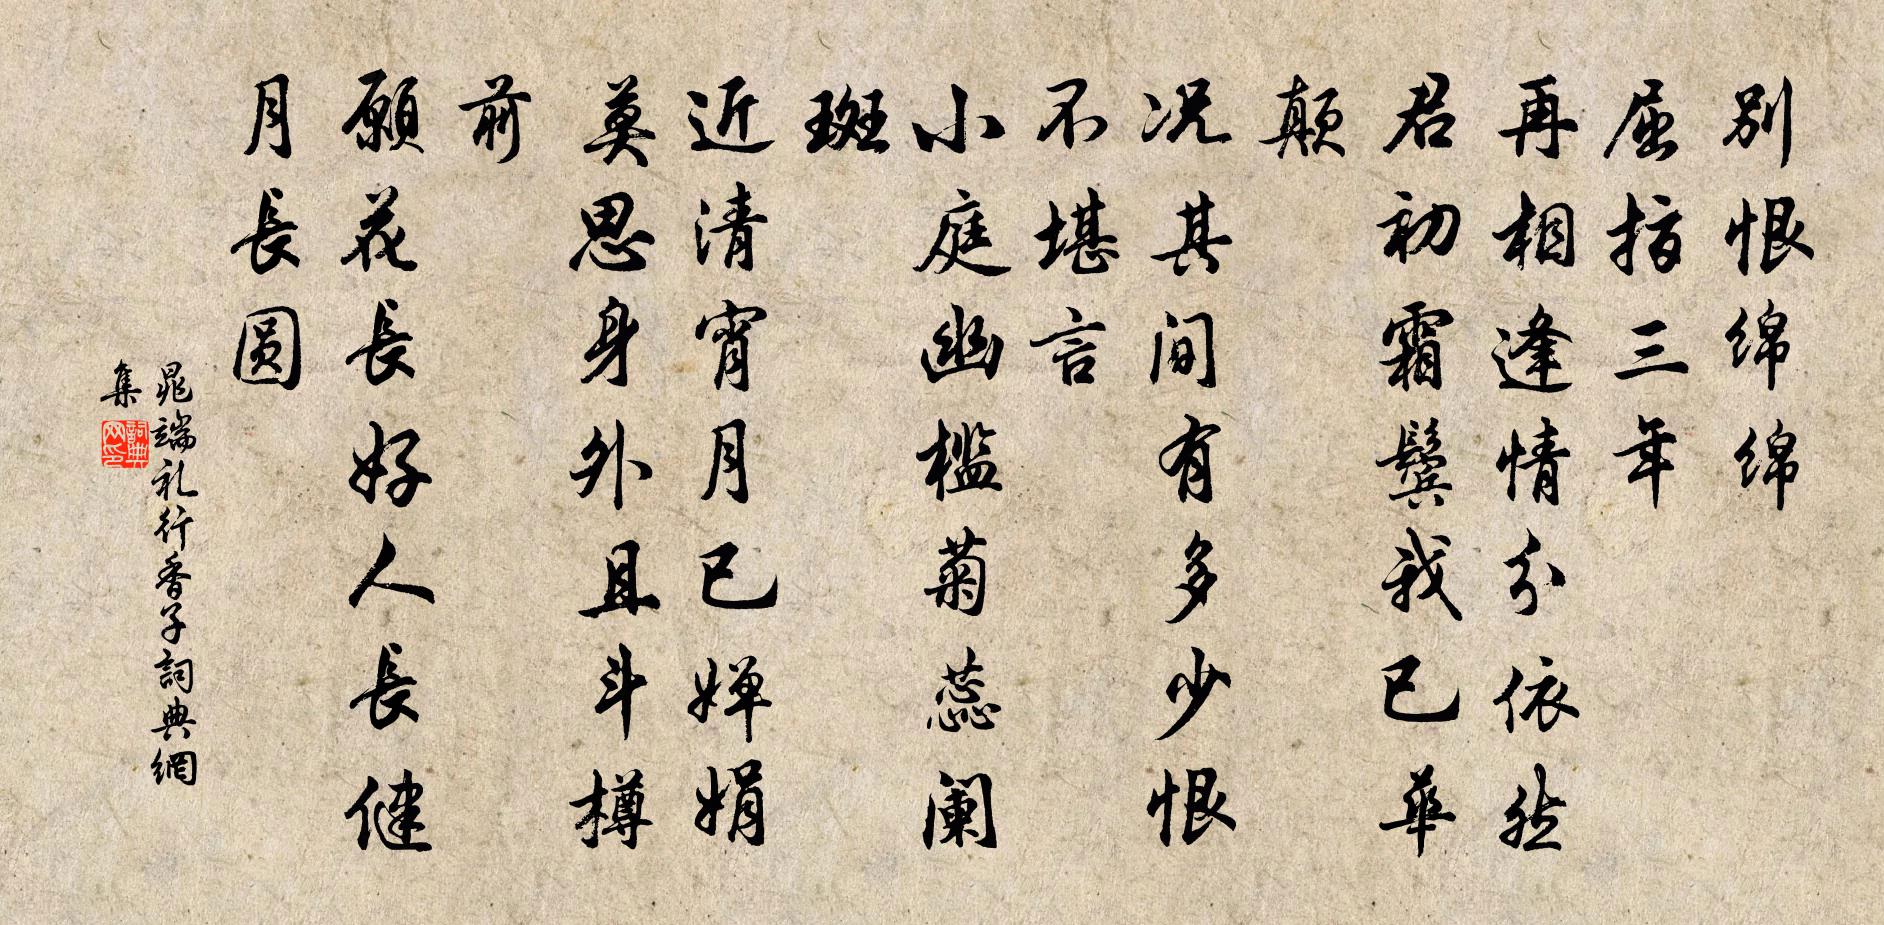 别恨绵绵
屈指三年
再相逢情分依然
君初霜鬓我已华
颠
况其间有多少恨
不堪言
小庭幽槛菊蕊阑
斑
近清宵月已婵娟
莫思身外且斗樽
前
愿花长好人长健
月长圆
晁端礼行香子詞典網
集
詞典网印